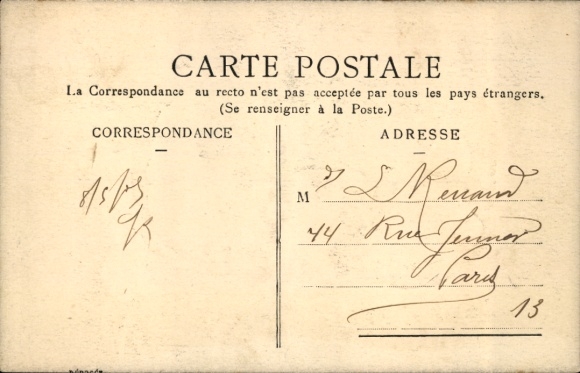 CARTE POSTALE
La Correspondance au recto n'est pas acceptée par tous les pays étrangers.
(Se renseigner à la Poste.)
CORRESPONDANCE
ADRESSE
M
44 Rue Jenner
Paris
13